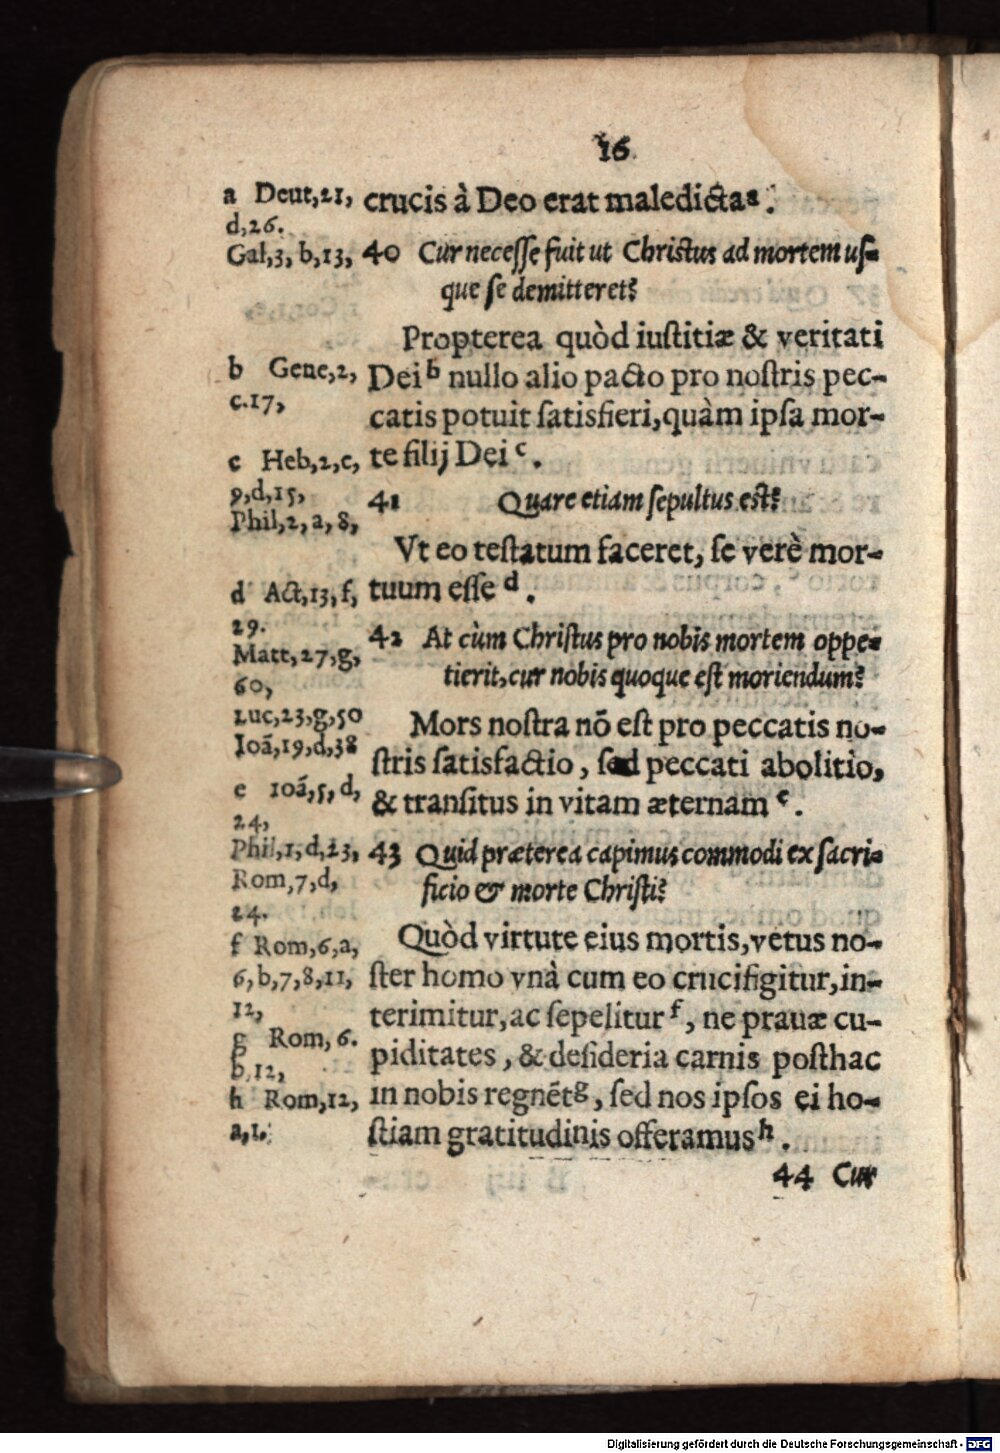 16
a Deut,21,
d,26.
Gal,3, b,13,
b Gene,2,
c.17,
c Heb,2,c,
9,d,15,
Phil,2,a,8,
d Act,13,f,
29.
Matt,27,g,
60,
Luc,23,g,50
Ioã,19,d,38
e Ioã,5,d,
24,
Phil,1,d,23,
Rom,7,d,
24.
f Rom,6,a,
6,b,7,8,11,
12,
g Rom,6.
b,12,
h Rom,12,
a,1.
crucis à Deo erat maledictaᵃ.
40 Cur necesse fuit ut Christus ad mortem us-
que se demitteret?
Propterea quòd iustitiæ & veritati
Deiᵇ nullo alio pacto pro nostris pec-
catis potuit satisfieri, quàm ipsa mor-
te filij Deiᶜ.
41 Quare etiam sepultus est?
Vt eo testatum faceret, se verè mor-
tuum esseᵈ.
42 At cùm Christus pro nobis mortem oppe-
tierit, cur nobis quoque est moriendum?
Mors nostra nõ est pro peccatis no-
stris satisfactio, sed peccati abolitio,
& transitus in vitam æternamᵉ.
43 Quid præterea capimus commodi ex sacri-
ficio & morte Christi?
Quòd virtute eius mortis, vetus no-
ster homo vnà cum eo crucifigitur, in-
terimitur, ac sepeliturᶠ, ne prauæ cu-
piditates, & desideria carnis posthac
in nobis regnẽtᵍ, sed nos ipsos ei ho-
stiam gratitudinis offeramusʰ.
44 Cur
Digitalisierung gefördert durch die Deutsche Forschungsgemeinschaft - DFG